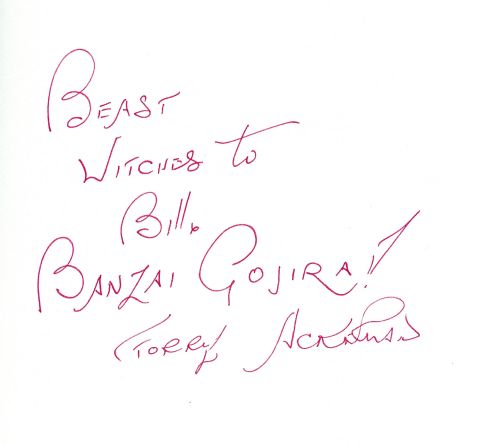 BEAST
WITCHES to
Bill.
BANZAI GOJIRA!
FORRY ACKERMAN